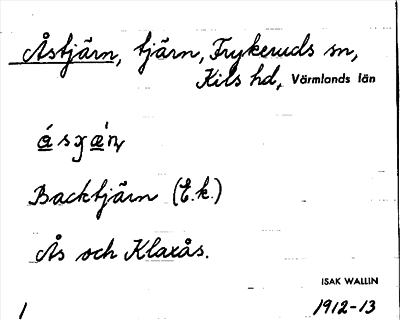 Åstjärn, tjärn, Frykeruds sn,
Kils hd, Värmlands län
Backtjärn (E.k.)
Ås och Klaxås.
ISAK WALLIN
1 1912-13